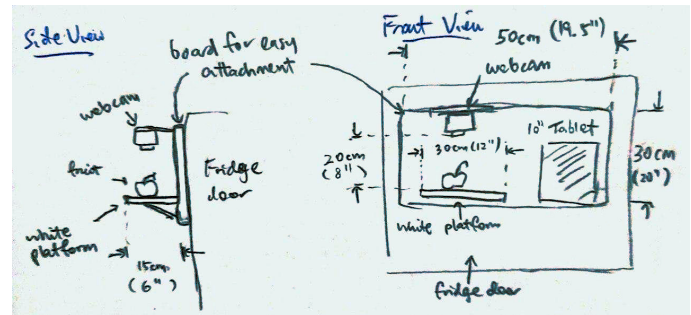 Side View
board for easy
attachment
webcam
fruit
Fridge
door
white
platform
15cm
(6")
Front View
50cm (19.5")
webcam
10" Tablet
30cm (12")
20cm
(8")
30cm
(20")
white platform
fridge door